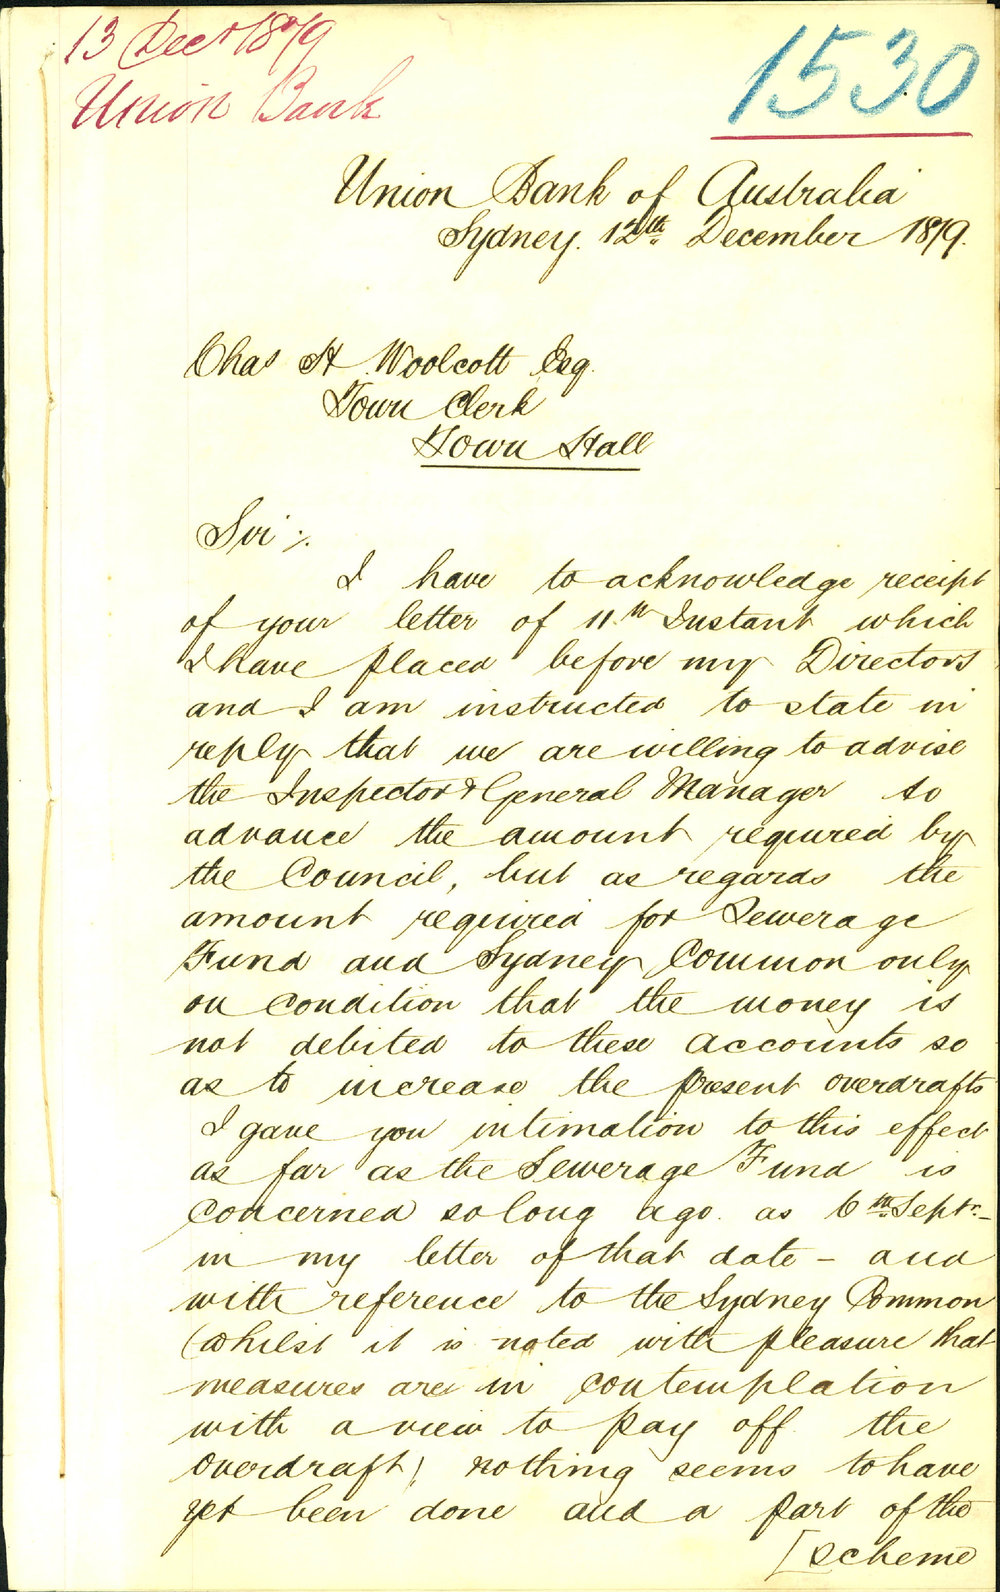 13 Decr 1879
Union Bank
1530
Union Bank of Australia
Sydney. 12th December 1879.
Chas H. Woolcott Esq.
Town Clerk
Town Hall
Sir :/.
I have to acknowledge receipt
of your letter of 11th Instant which
I have placed before my Directors
and I am instructed to state in
reply that we are willing to advise
the Inspector & General Manager to
advance the amount required by
the Council, but as regards the
amount required for Sewerage
Fund and Sydney Common only
on condition that the money is
not debited to these accounts so
as to increase the present overdrafts
I gave you intimation to this effect
as far as the Sewerage Fund is
concerned so long ago. as 6th Septr.-
in my letter of that date - and
with reference to the Sydney Common
(whilst it is noted with pleasure that
measures are in contemplation
with a view to pay off the
overdraft) nothing seems to have
yet been done and a part of the
[scheme